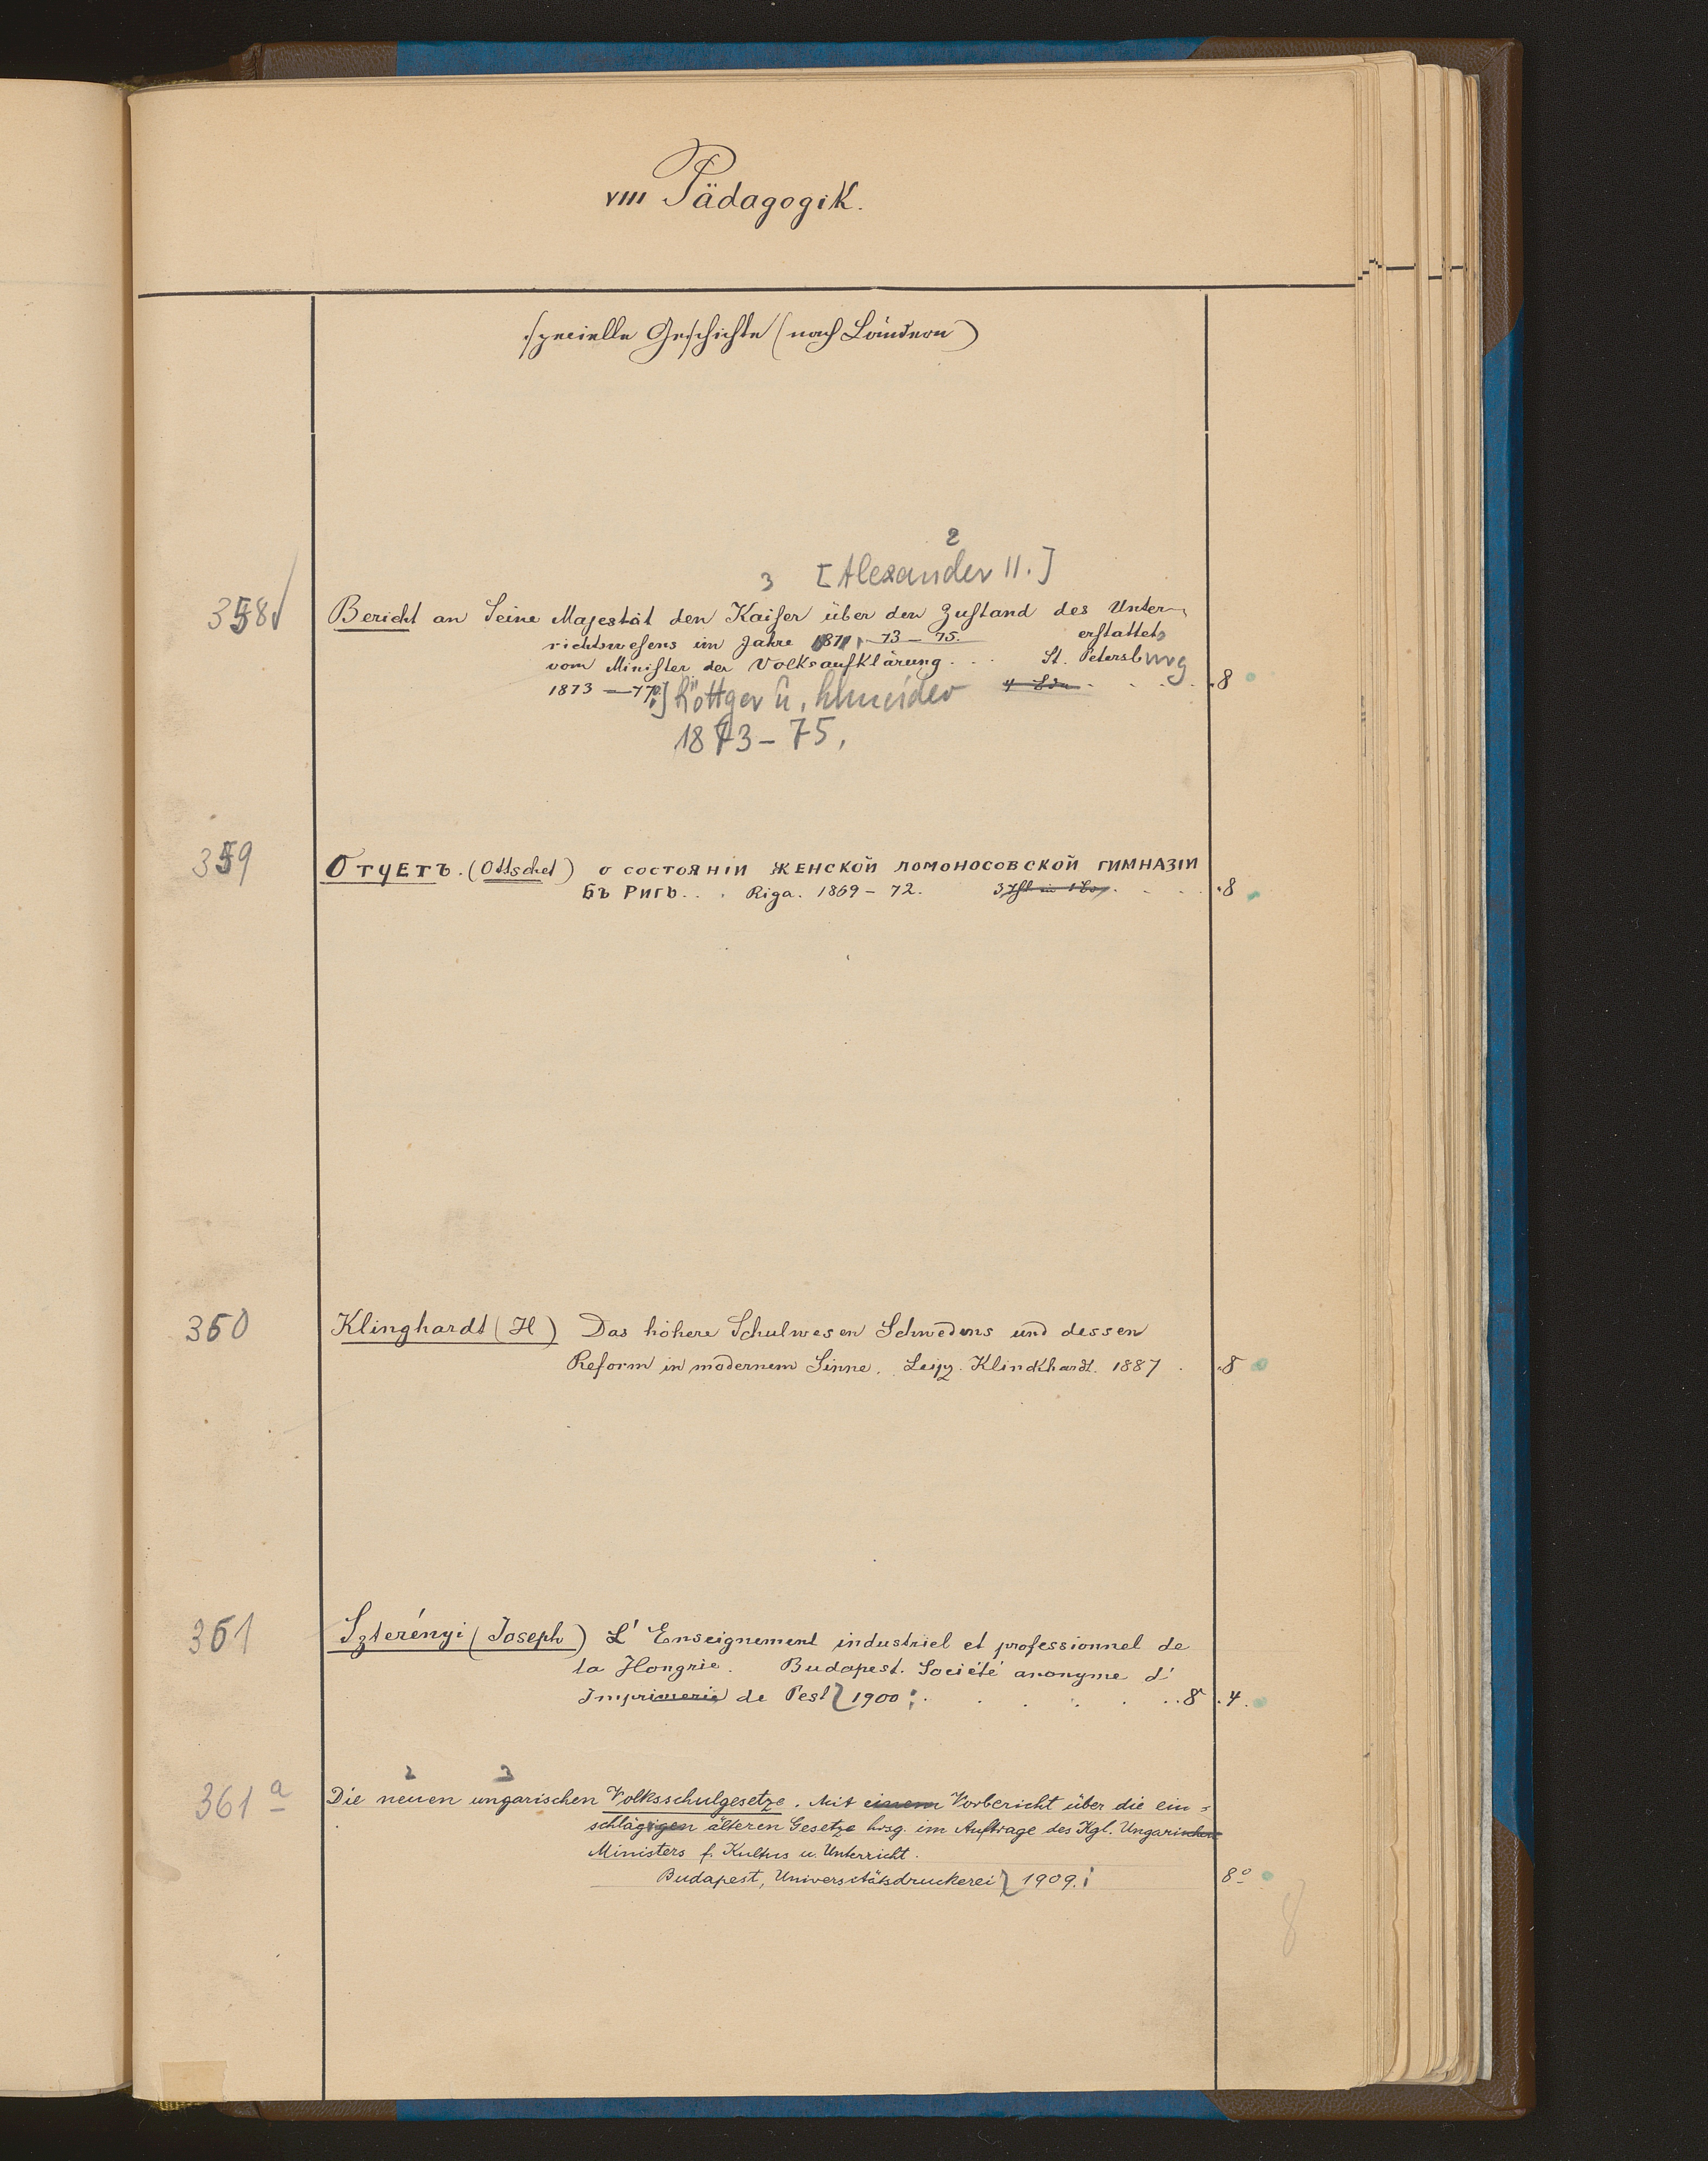 VIII Pädagogik.
specielle Geschichte (nach Ländern)
2
3 [Alexander II.]
358 Bericht an Seine Majestät den Kaiser über den Zustand des Unter-
richtswesens im Jahre 1871, -73-75. erstattet
vom Minister der Volksaufklärung . . . St. Petersburg
1873-77] Röttger u. Schneider 4 Bde . . . . 8
1873-75,
359 Отчетъ. (Ottschet) о состоянiи женской ломоносовской гимназiи
Бъ Ригѣ . . . Riga. 1869-72. . . . . 8
360 Klinghardt (H) Das höhere Schulwesen Schwedens und dessen
Reform in modernem Sinne. Leipz. Klinckhardt. 1887 . 8
361 Szterényi (Joseph) L'Enseignement industriel et professionnel de
la Hongrie. Budapest. Société anonyme d'
Imprimerie de Pest 1900 . . . . . . 8 . 4.
2 3
361 a Die neuen ungarischen Volksschulgesetze. Mit einem Vorbericht über die ein-
schlägigen älteren Gesetze hrsg. im Auftrage des Kgl. Ungarischen
Ministers f. Kultus u. Unterricht.
Budapest, Universitätsdruckerei 1909. 8°
8